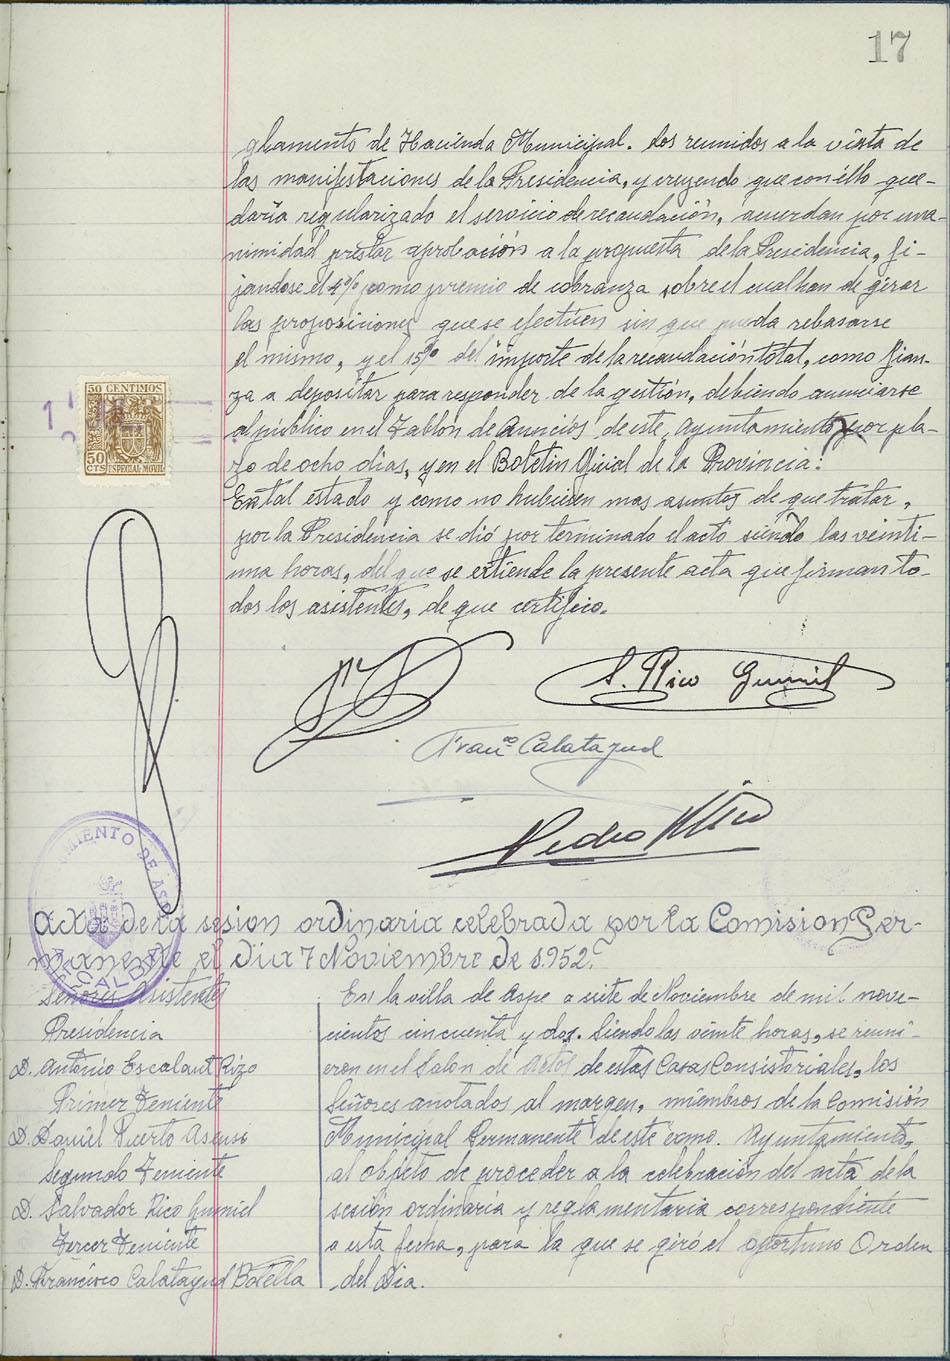 17
glamento de Hacienda Municipal. Los reunidos a la vista de
las manifestaciones de la Presidencia, y creyendo que con éllo que-
daría regularizado el servicio de recaudación, acuerdan por una-
nimidad prestar aprobación a la propuesta de la Presidencia, fi-
jandose el 4% como premio de cobranza sobre el cual han de girar
las proposiciones que se efectúen sin que pueda rebasarse
el mismo, y el 15% del importe de la recaudación total, como fian-
za a depositar para responder de la gestión, debiendo anunciarse
al público en el Tablón de Anuncios de este Ayuntamiento por pla-
zo de ocho dias, y en el Boletin Oficial de la Provincia.
En tal estado y como no hubieren mas asuntos de que tratar,
por la Presidencia se dió por terminado el acto siendo las veinti-
una horas, del que se extiende la presente acta que firman to-
dos los asistentes, de que certifico.
50 CENTIMOS
50 CTS
ESPECIAL MOVIL
S. Rico Gumiel
Franco Calatayud
Pedro Rico
AYUNTAMIENTO DE ASPE
ALCALDIA
Acta de la sesion ordinaria celebrada por la Comision Per-
manente el dia 7 Noviembre de 1.952.
Señores Asistentes
Presidencia
D. Antonio Escalant Rizo
Primer Teniente
D. Daniel Puerto Asensi
Segundo Teniente
D. Salvador Rico Gumiel
Tercer Teniente
D. Francisco Calatayud Botella
En la villa de Aspe a siete de Noviembre de mil nove-
cientos cincuenta y dos. Siendo las veinte horas, se reuni-
eron en el Salon de Actos de estas Casas Consistoriales, los
Señores anotados al margen, miembros de la Comisión
Municipal Permanente de este Excmo. Ayuntamiento,
al objeto de proceder a la celebración del acta de la
sesión ordinaria y reglamentaria correspondiente
a esta fecha, para la que se giró el oportuno Orden
del Dia.